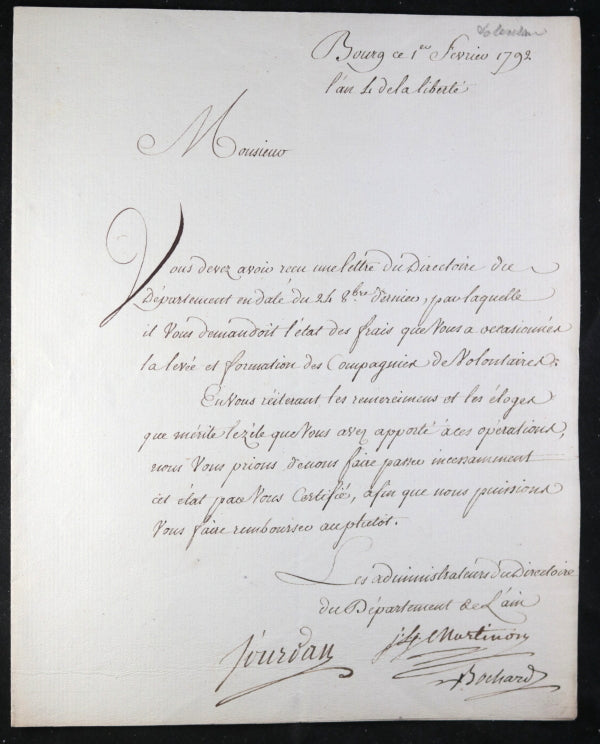 Bourg ce 1er Fevrier 1792
l'an 4 de la liberté
Monsieur
Vous devez avoir recu une lettre du Directoire du
Département en daté du 24 8bre dernier, par laquelle
il Vous demandoit l'état des frais que Vous a occasionnés
la levée et formation des Compagnies de Volontaires.
En vous réiterant les remercimens et les éloges
que mérite le zéle que Vous avez apporté à ces opérations,
nous Vous prions de nous faire passer incessamment
cet état par Vous Certifié, afin que nous puissions
Vous faire rembourser au plutot.
Les administrateurs du Directoire
du Département de L'ain
Jourdan
Martinon
Bochard